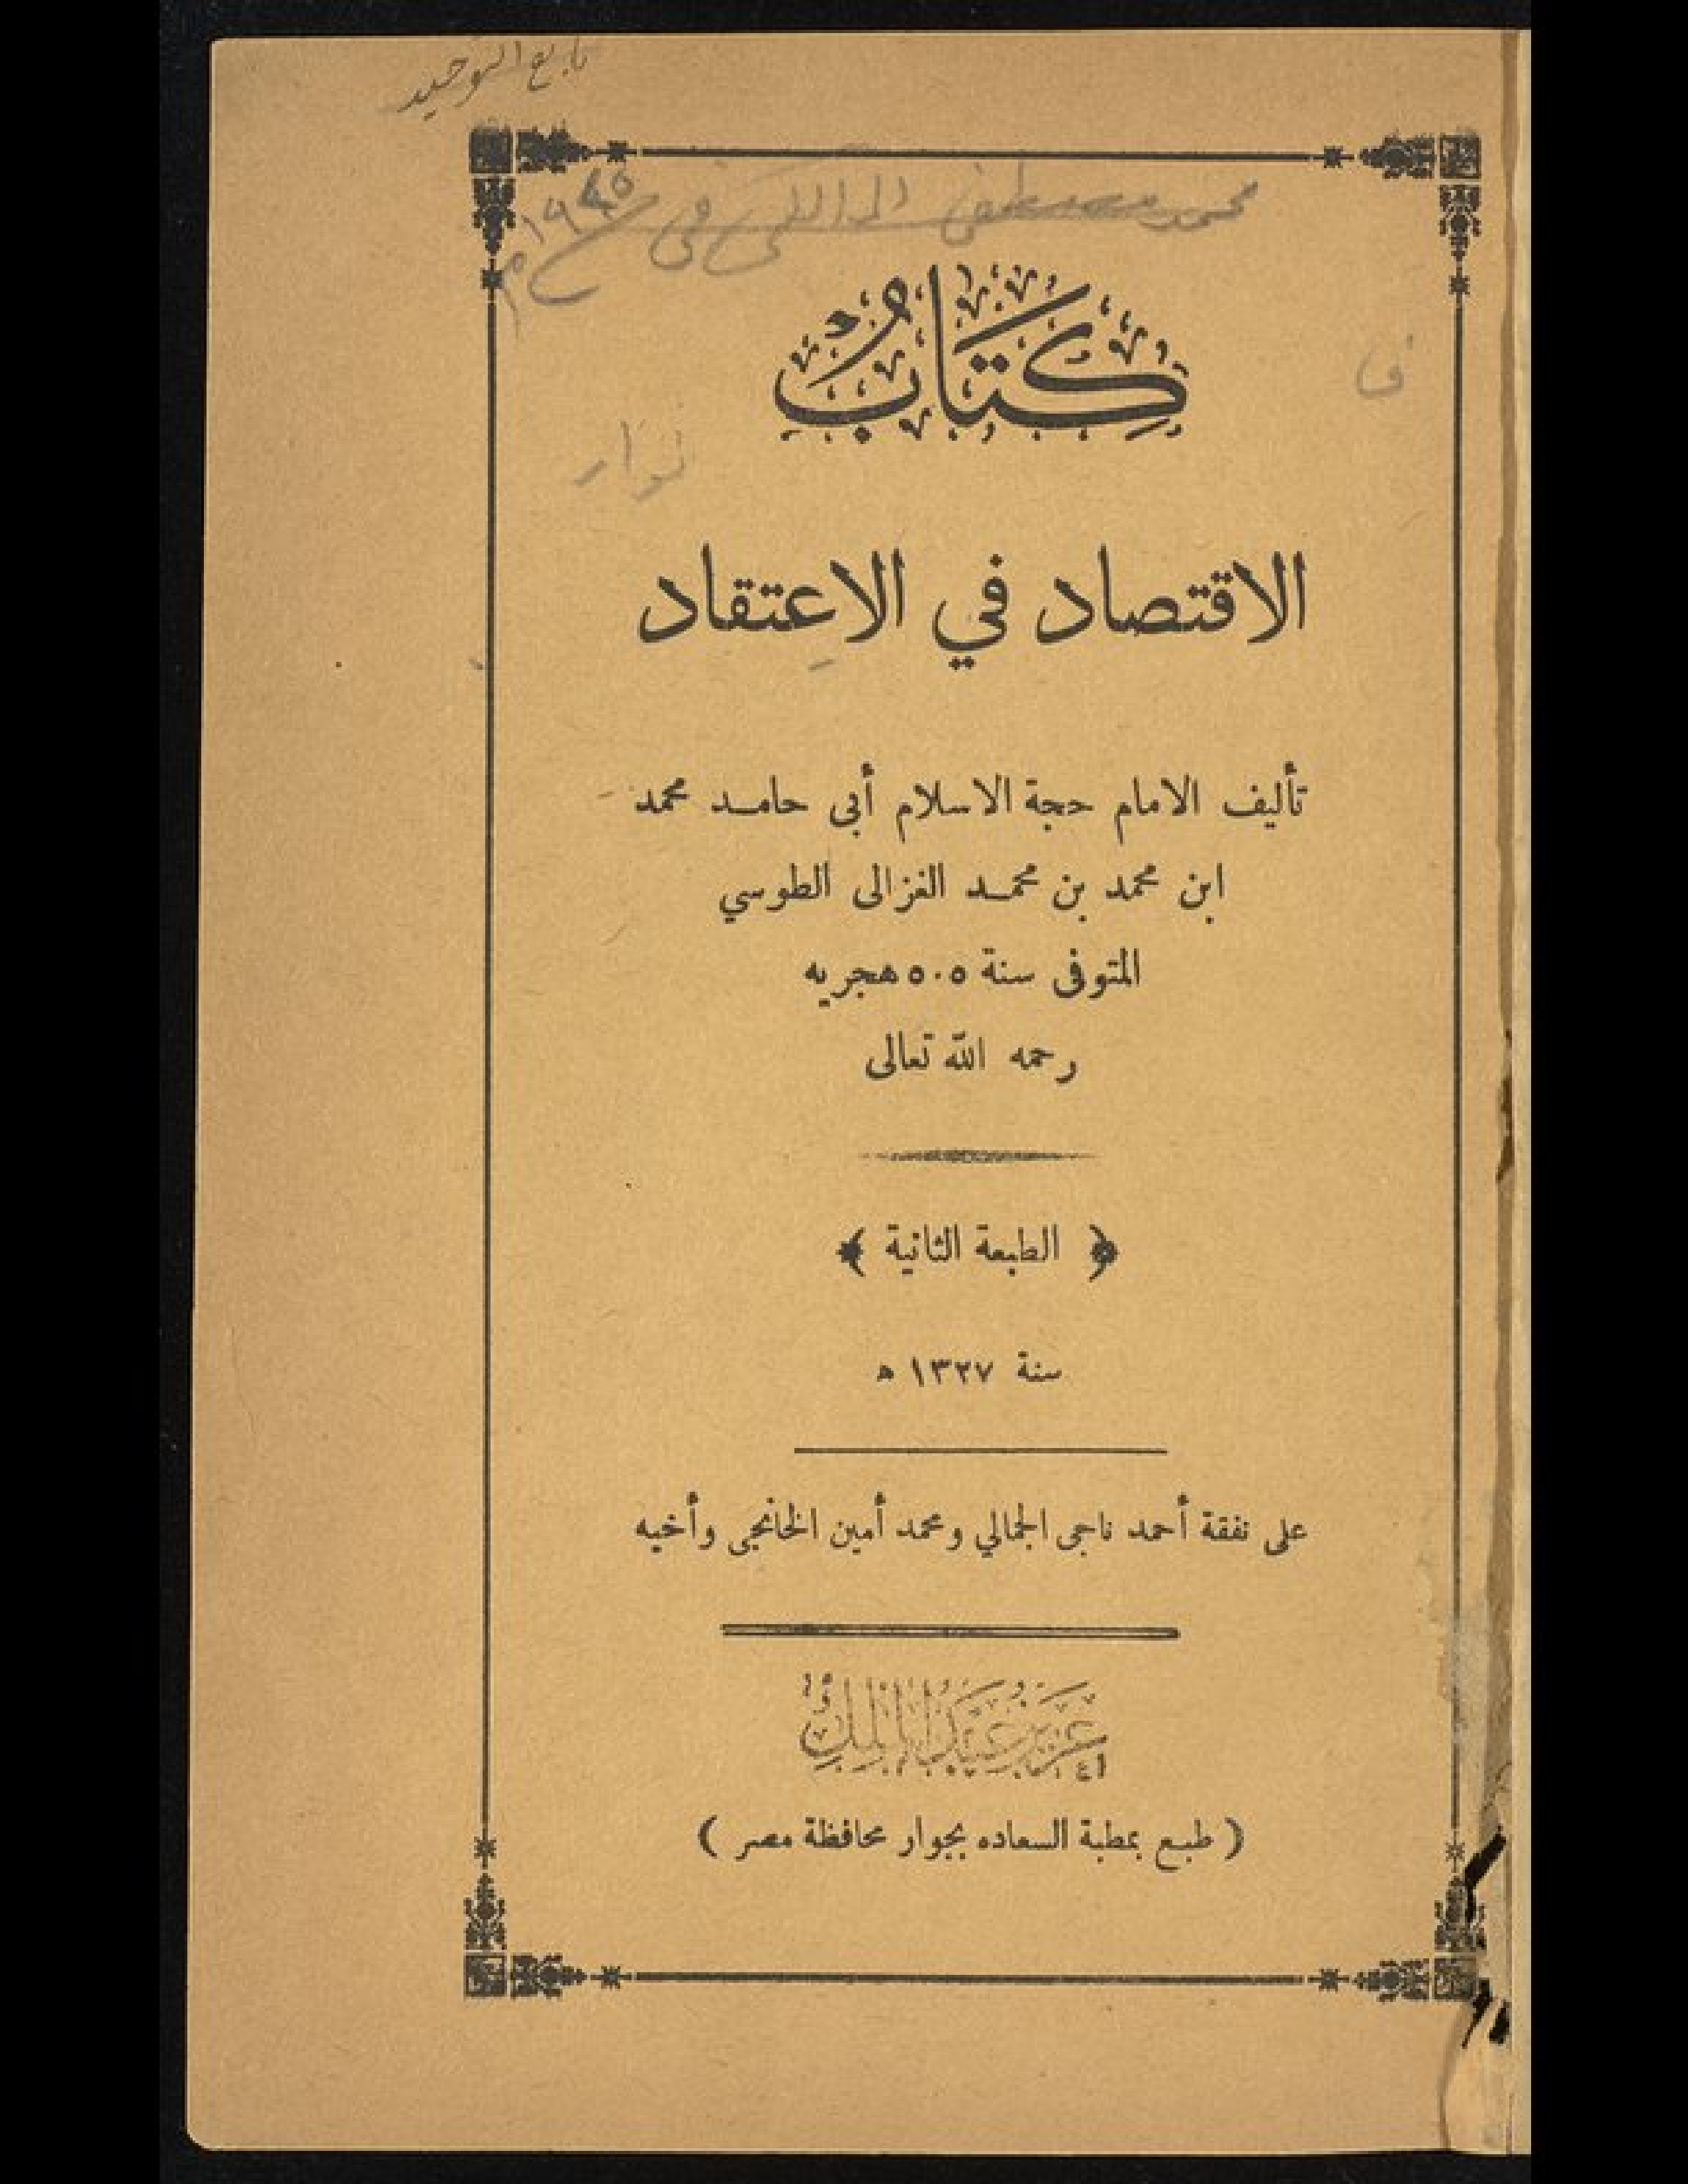 تابع التوحيد
محمد مصطفى المالكى فى
كتابٌ
الاقتصاد في الاعِتقاد
تأليف الامام حجة الاسلام أبى حامد محمد
ابن محمد بن محمد الغزالى الطوسي
المتوفى سنة ٥٠٥ هجريه
رحمه الله تعالى
﴿ الطبعة الثانية ﴾
سنة ١٣٢٧ ه
على نفقة أحمد ناجى الجمالي ومحمد أمين الخانجى وأخيه
( طبع بمطبة السعاده بجوار محافظة مصر )